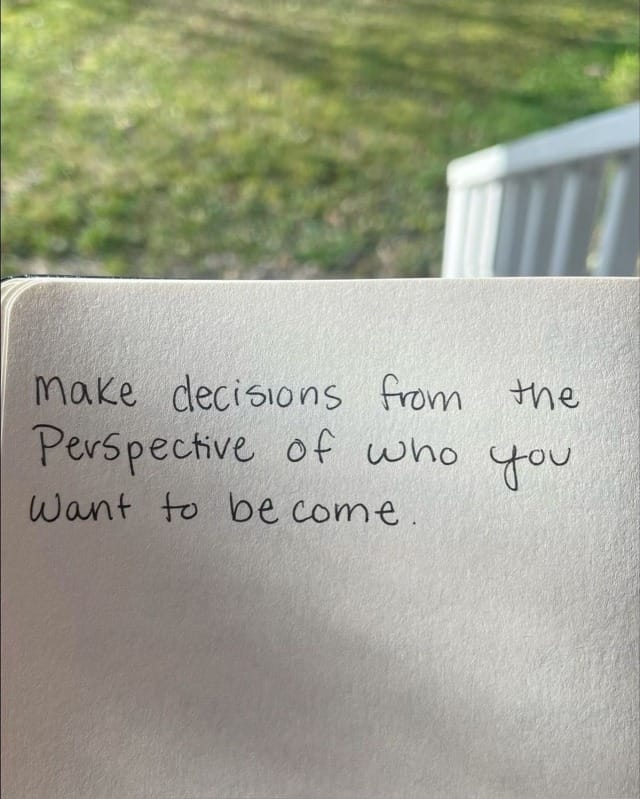 make decisions from the
Perspective of who you
want to be come.